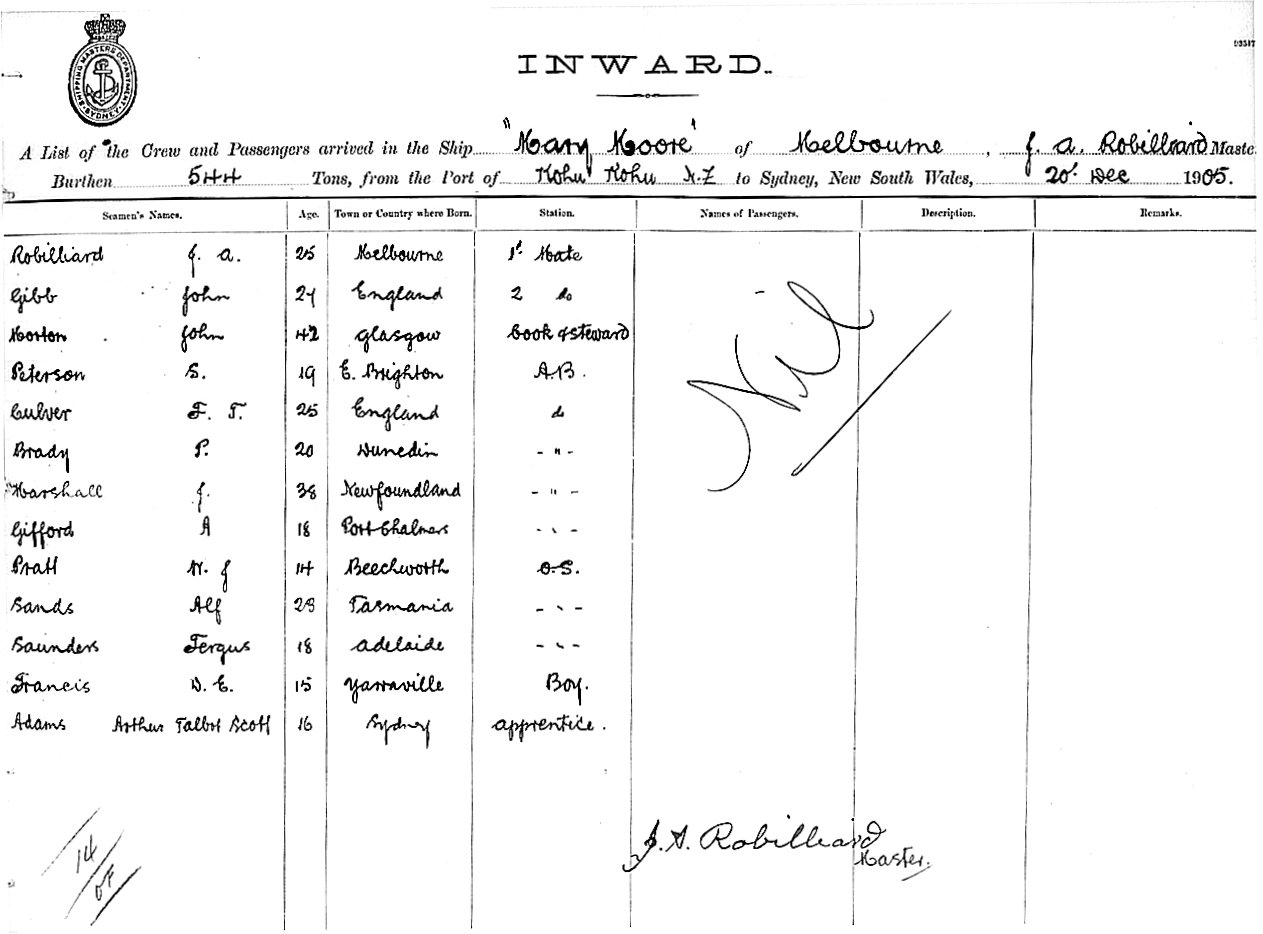 SHIPPING MASTERS DEPARTMENT
SYDNEY
INWARD.
A List of the Crew and Passengers arrived in the Ship "Mary Moore" of Melbourne, J. A. Robilliard Maste
Burthen 544 Tons, from the Port of Kohu Kohu N.Z to Sydney, New South Wales, 20' Dec 1905.
Seamen's Names. Age. Town or Country where Born. Station. Names of Passengers. Description. Remarks.
Robilliard J. A. 25 Melbourne 1st Mate
Gibb John 27 England 2 do
Morton John 42 Glasgow Cook & Steward
Peterson S. 19 E. Brighton A.B.
Culver F. T. 25 England do
Brady P. 20 Dunedin - " -
Marshall J. 38 Newfoundland - " -
Gifford A 18 Port Chalmers - " -
Pratt W. J 14 Beechworth O.S.
Sands Alf 23 Tasmania - " -
Saunders Fergus 18 Adelaide - " -
Francis D. E. 15 Yarraville Boy.
Adams Arthur Talbot Scott 16 Sydney apprentice.
Nil
J. A. Robilliard
Master.
14